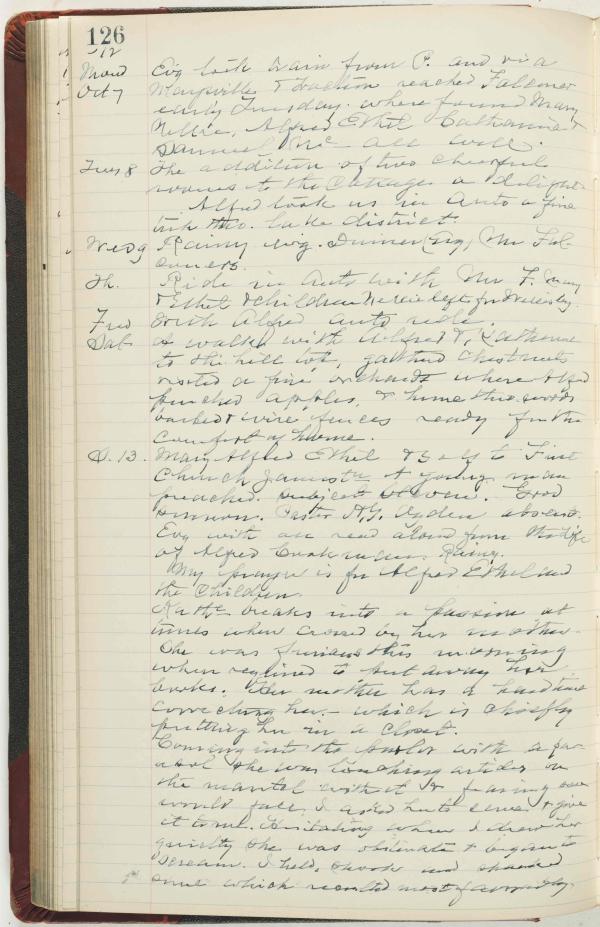 126
12
Mond Evg took train from P. and via
Oct 7 Maysville & traction reached Falconer
early Tuesday. where found Mary
Nellie, Alfred, Ethel Catharine &
Samuel Mc all well.
Tues 8 The addition of two cheerful
rooms to the Cottage a delight.
Alfred took us in auto a fine
trip thro. lake district.
Wed 9 Rainy Dinner Mr Fal-
coners.
Th. Ride in Auto with Mr F. Mary
& Ethel & children Nellie left for
Frid with Alfred auto ride.
Sat A walk with Alfred & Katharine
to the hill lot, gathered chestnuts
visited a fine orchard where Alfred
apples, & home thro. woods
barbed wire fences ready for the
comfort of home.
S. 13. Mary Alfred Ethel & Self to First
Church A young man
preached. Subject Good
sermon. Pastor A.G. Ogden absent.
Evg with all read aloud from the life
of Alfred Cookman. Rainy.
My prayer is for Alfred Ethel and
the Children.
Kathe breaks into a passion at
times when crossed by her mother.
She was furious this morning
when required to put away her
books. Her mother has a hard time
correcting her - which is chiefly
putting her in a closet.
Coming into the parlor with a par-
asol she was touching articles on
the mantel with it & fearing one
would fall, I asked her to come & give
it to me. Hesitating when I drew her
quietly she was obstinate & began to
scream. I held, shook and
some which resulted most favorably.